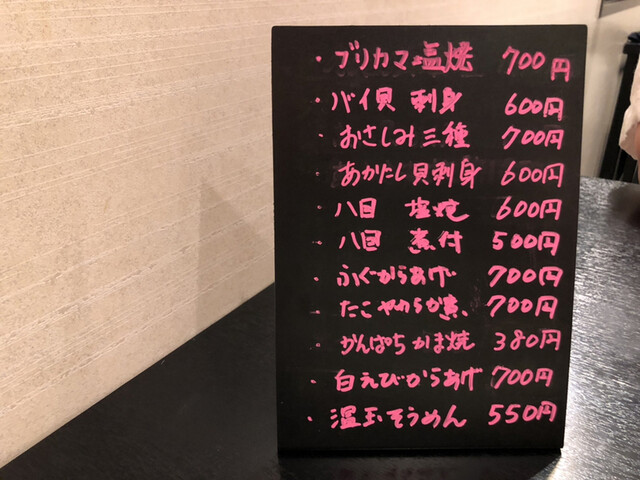 ・ブリカマ塩焼 700円
・バイ貝 刺身 600円
・おさしみ三種 700円
・あかにし貝刺身 600円
・八目 塩焼 600円
・八目 煮付 500円
・ふぐからあげ 700円
・たこやわらか煮 700円
・かんぱちかま焼 380円
・白えびからあげ 700円
・温玉そうめん 550円